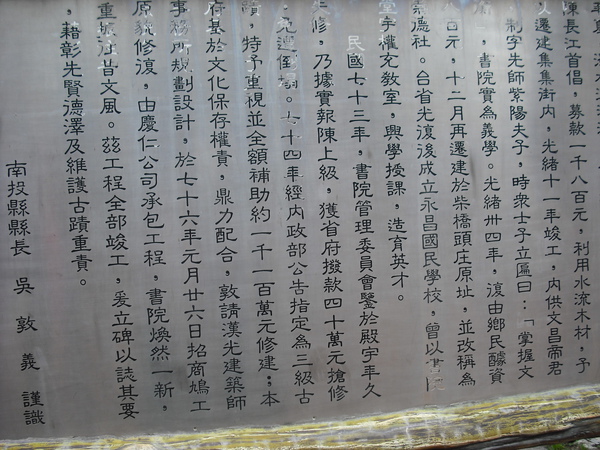 陳長江首倡,募款一千八百元,利用水流木材,予
以遷建集集街內,光緒十一年竣工,內供文昌帝君
制字先師紫陽夫子,時眾士子立匾曰:「掌握文
書院實為義學。光緒卅四年,復由鄉民醵資
百元,十二月再遷建於柴橋頭庄原址,並改稱為
崇德社。台省光復後成立永昌國民學校,曾以書院
堂宇權充教室,興學授課,造育英才。
民國七十三年,書院管理委員會鑒於殿宇年久
失修,乃據實報陳上級,獲省府撥款四十萬元搶修
,免遭倒塌。七十四年經內政部公告指定為三級古
蹟,特予重視並全額補助約一千一百萬元修建,本
府基於文化保存權責,鼎力配合,敦請漢光建築師
事務所規劃設計,於七十六年元月廿六日招商鳩工
原貌修復,由慶仁公司承包工程,書院煥然一新,
重振往昔文風。茲工程全部竣工,爰立碑以誌其要
,藉彰先賢德澤及維護古蹟重責。
南投縣縣長 吳敦義 謹識